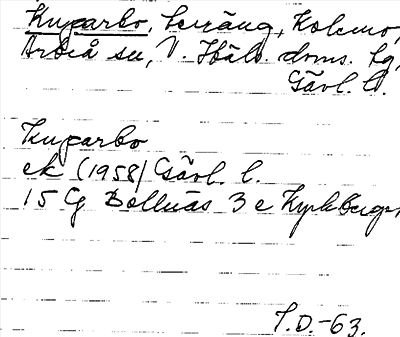 Knuparbo, terräng, Kolsmo,
Arbrå sn, V. Häls. doms. fg,
Gävl. l.
Knuparbo
ek (1958) Gävl. l.
15 G Bollnäs 3 e Kyrkberget
T.D.-63.